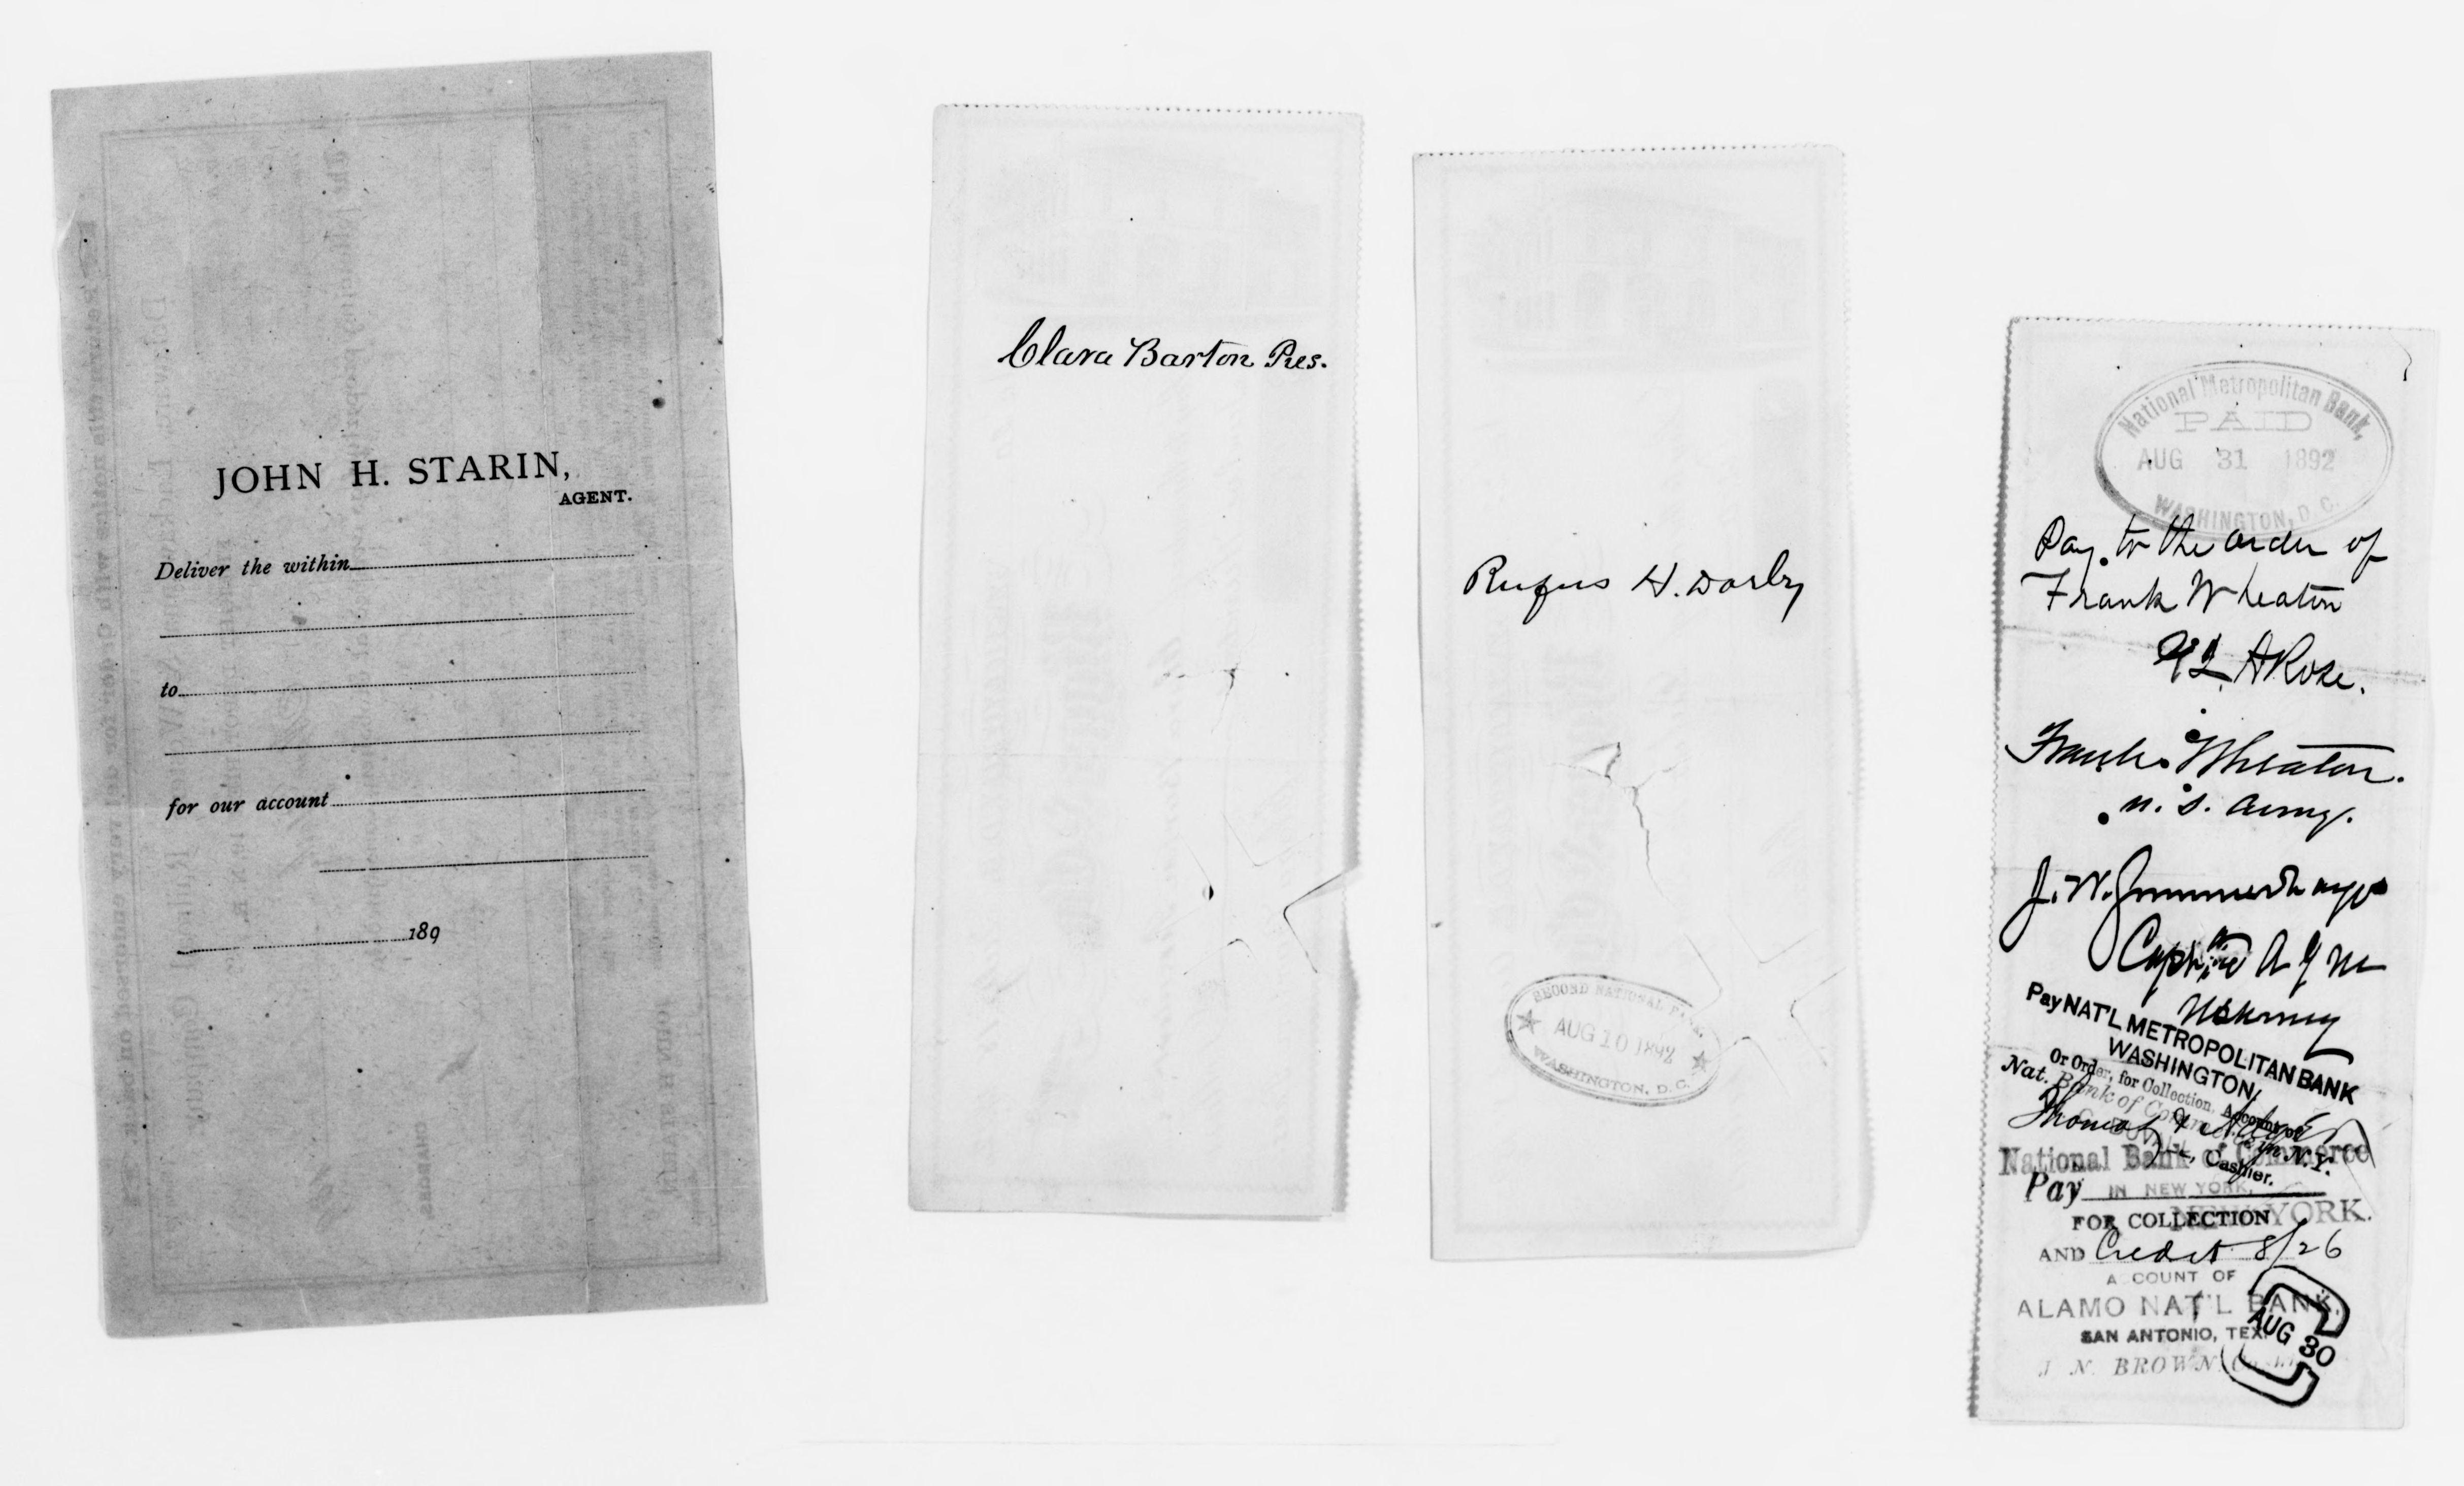 JOHN H. STARIN,
AGENT.
Deliver the within
to
for our account
189
Clara Barton Pres.
Rufus H. Darby
SECOND NATIONAL BANK.
AUG 10 1892
WASHINGTON, D.C.
National Metropolitan Bank,
PAID
AUG 31 1892
WASHINGTON, D.C.
Pay to the order of
Frank Wheaton
A Rose.
Frank Wheaton.
U. S. Army.
J. W.
Capt
Pay NAT'L METROPOLITAN BANK
WASHINGTON,
Or Order, for Collection, Account of
Nat. Bank of Commerce in N.Y.
Cashier.
National Bank of Commerce
IN NEW YORK,
Pay
NEW YORK.
FOR COLLECTION
AND Credit 8/26
A COUNT OF
ALAMO NAT'L BANK,
SAN ANTONIO, TEX.
J N. BROWN
AUG 30